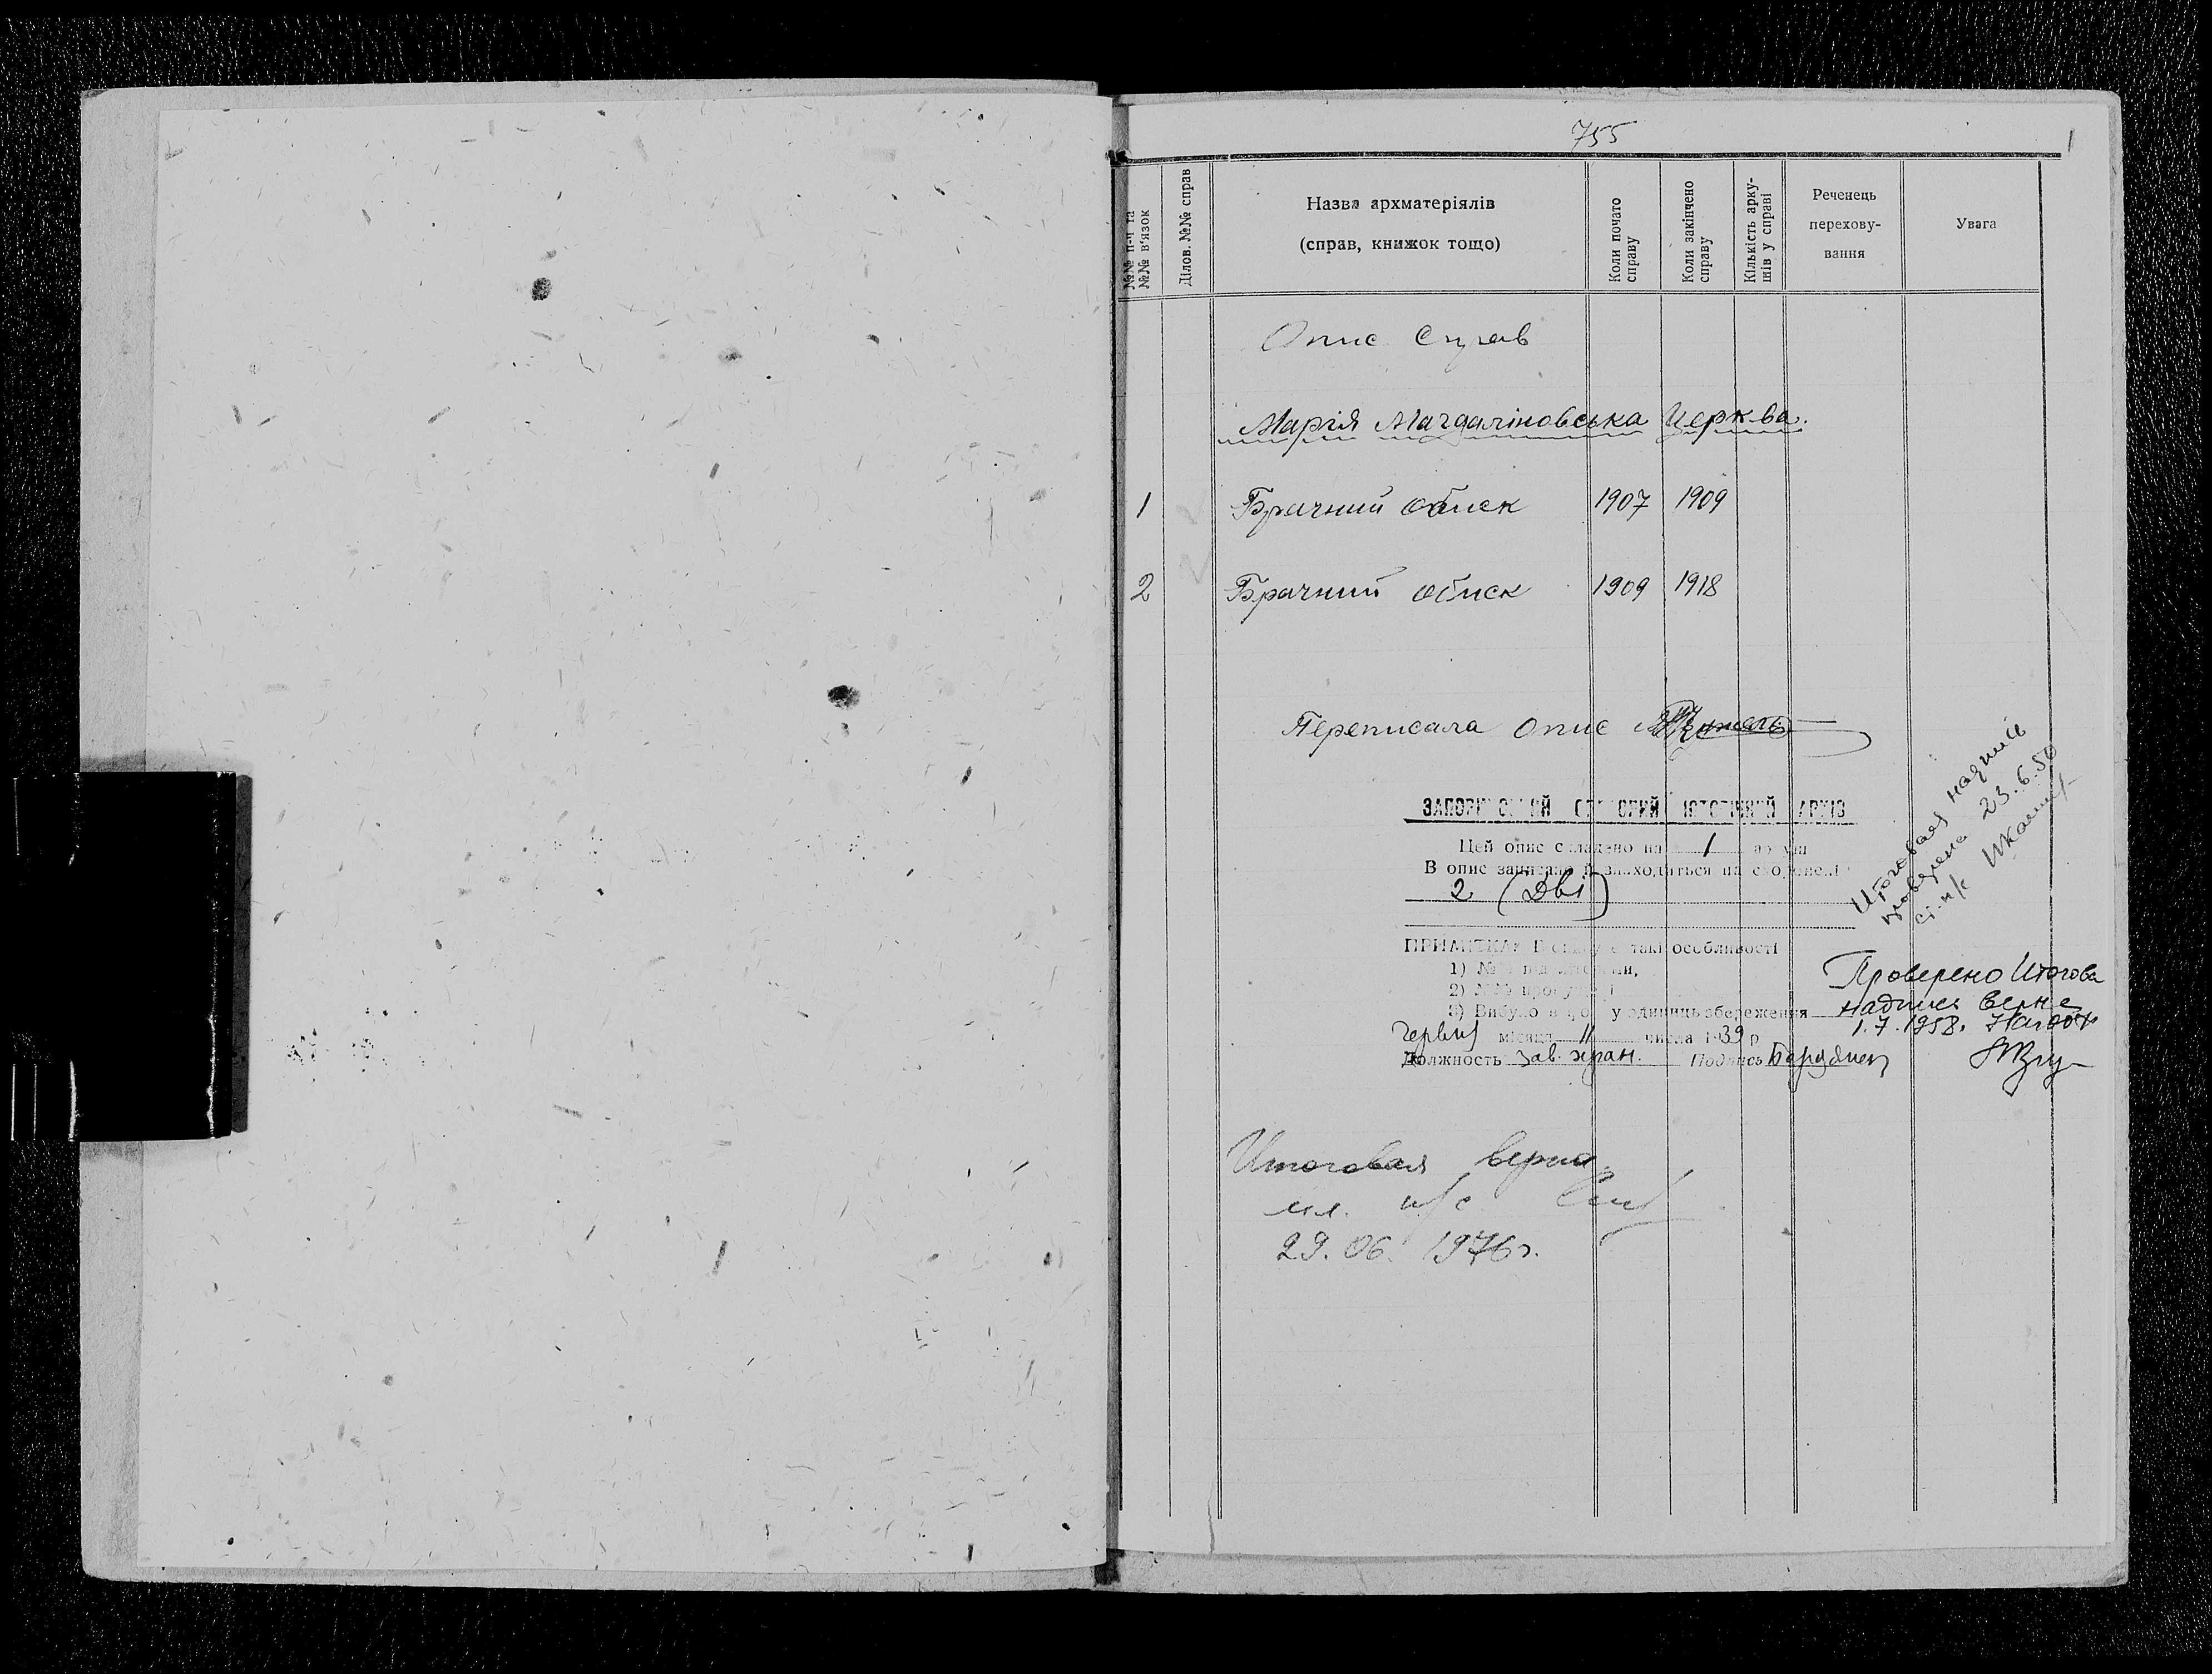 755
1
№№ п-ч та №№ в'язок
Ділов. №№ справ
Назва архматеріялів
(справ, книжок тощо)
Коли почато справу
Коли закінчено справу
Кількість арку-
шів у справі
Реченець
перехову-
вання
Увага
Опис справ
Марія Магдаліновська Церква.
1 Брачний обиск 1907 1909
2 Брачний обиск 1909 1918
Переписала опис
ІСТОРИЧНИЙ АРХІВ
Цей опис складено на 1
В опис записано й знаходиться на
2 (Дві)
ПРИМІТКА: такі особливості
1) №№
2) №№
3) Вибуло одиниць збереження
Червня місяця 11 числа 1939 р
Должность зав. хран. Подпись
Итоговая надпись
проверена 23.6.50
ст. н/с
Проверено Итогова
надпись верна
1.7.1958.
Итоговая верна
мл. н/с
29.06. 1976г.